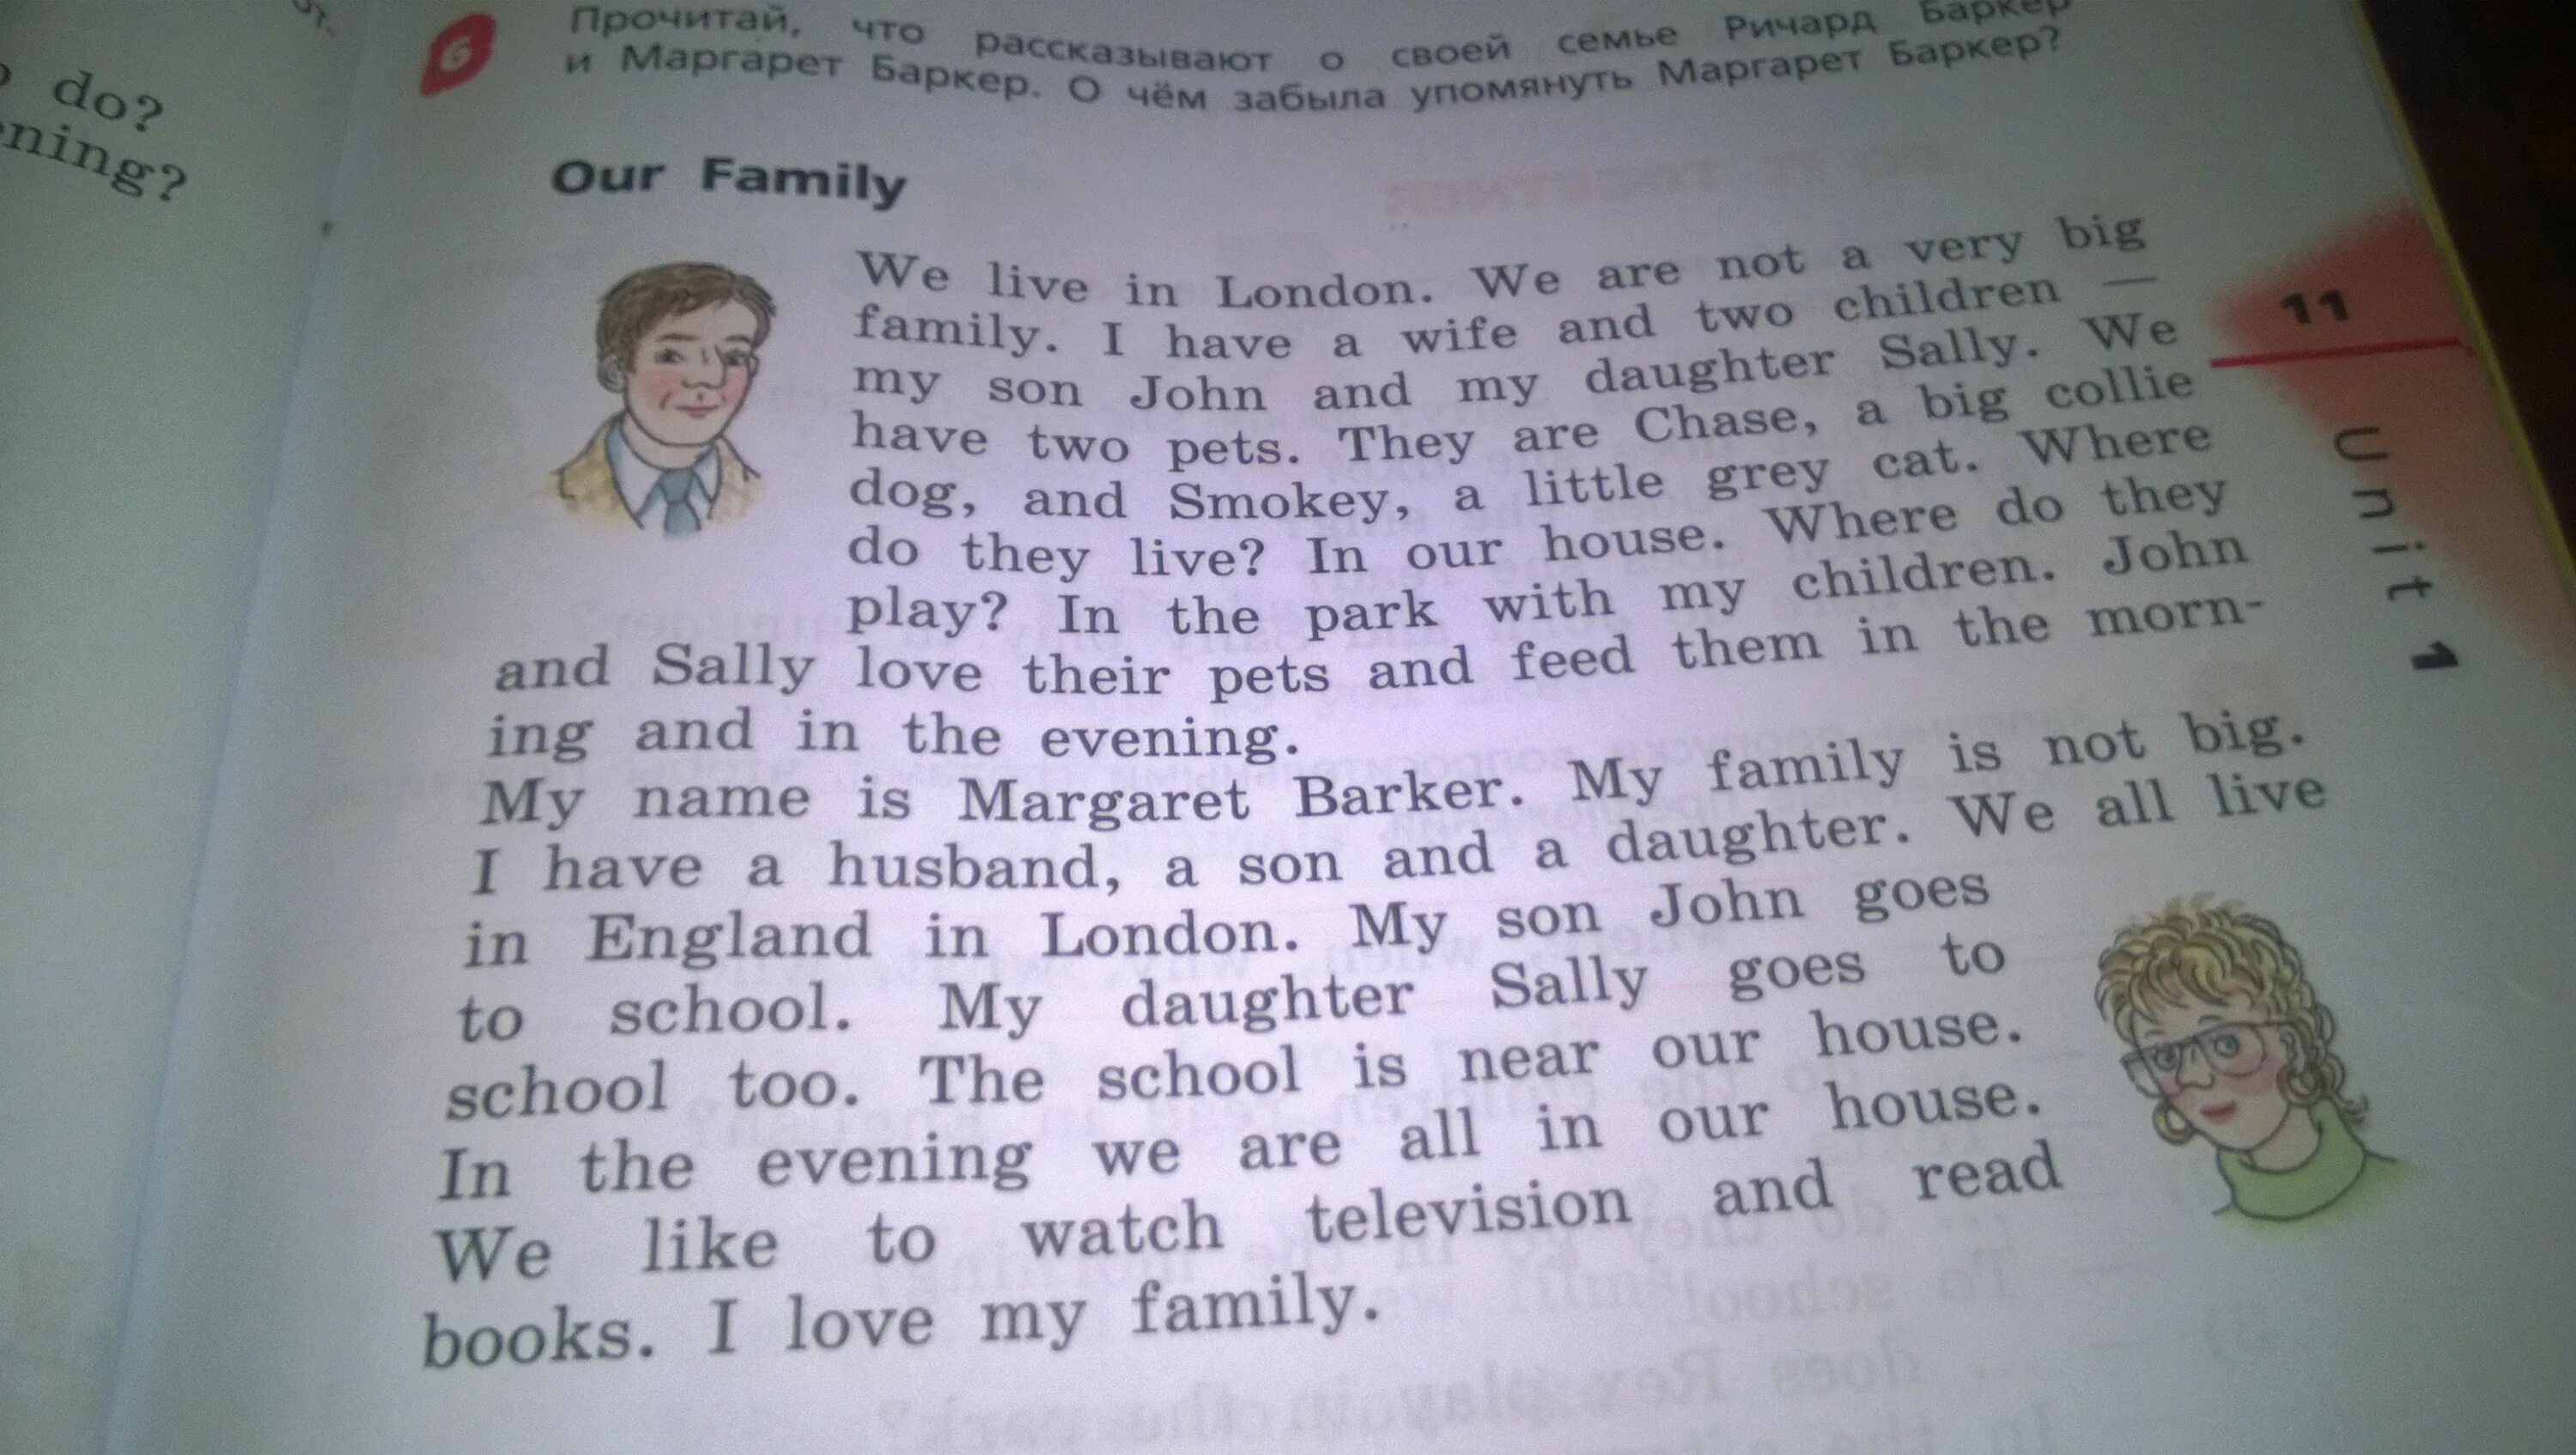 от.
do?
ning?
6
Прочитай, что рассказывают о своей семье Ричард Баркер
и Маргарет Баркер. О чём забыла упомянуть Маргарет Баркер?
Our Family
We live in London. We are not a very big
family. I have a wife and two children —
my son John and my daughter Sally. We
have two pets. They are Chase, a big collie
dog, and Smokey, a little grey cat. Where
do they live? In our house. Where do they
play? In the park with my children. John
and Sally love their pets and feed them in the morn-
ing and in the evening.
My name is Margaret Barker. My family is not big.
I have a husband, a son and a daughter. We all live
in England in London. My son John goes
to school. My daughter Sally goes to
school too. The school is near our house.
In the evening we are all in our house.
We like to watch television and read
books. I love my family.
11
Unit 1